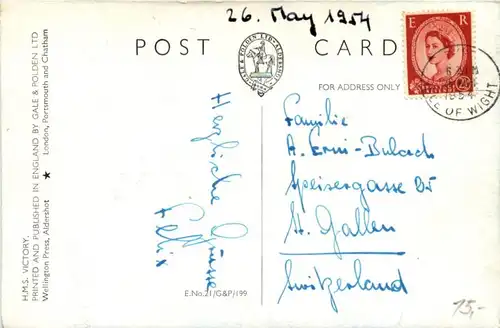 26. May 1954
POST CARD
GALE & POLDEN LTD. ALDERSHOT
E R
2½
1954
ISLE OF WIGHT
FOR ADDRESS ONLY
Herzliche Grüsse
Felix
Familie
A. Erni-Bulach
Speisergasse 35
St. Gallen
Switzerland
H.M.S. VICTORY.
PRINTED AND PUBLISHED IN ENGLAND BY GALE & POLDEN LTD
Wellington Press, Aldershot ★ London, Portsmouth and Chatham
E.No.21/G&P/199
15,-